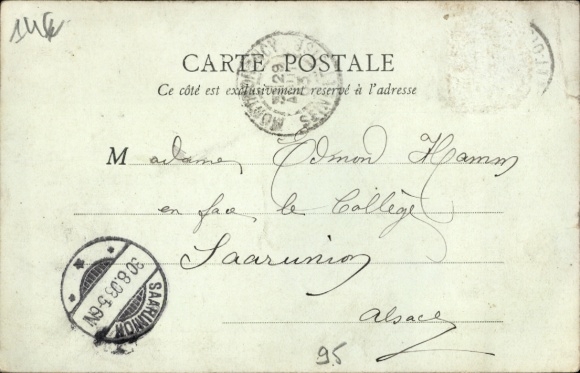 CARTE POSTALE
Ce côté est exclusivement réservé à l'adresse
Madame Edmond Hamm
en face le Collège
Saarunion
Alsace
SAARUNION
30.8.03.5-6N
95